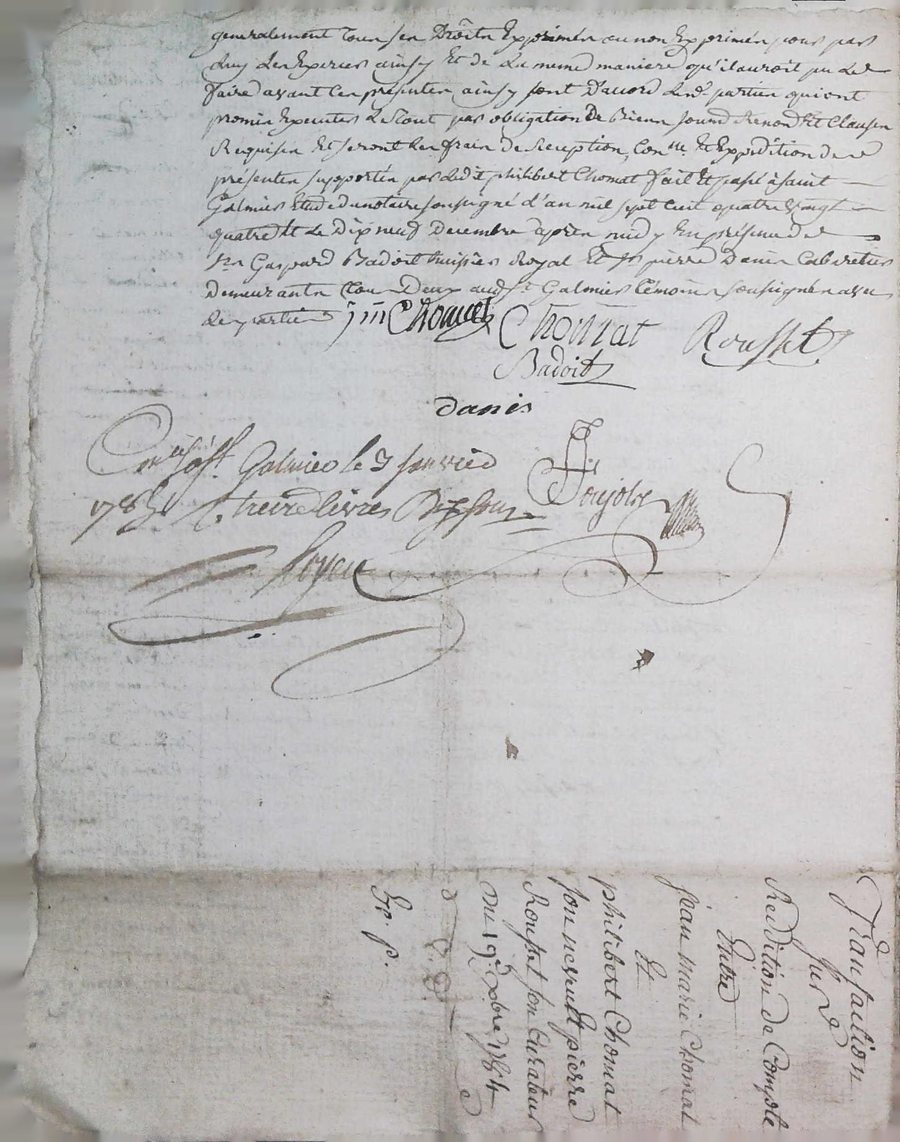 generalement tous ses Droits Exprimés ou non Exprimés pour par
Luy les Exercer ainsy Et de La meme maniere qu'il auroit pu Les
faire avant les présentes ainsy sont d'accord Lesd. parties qui ont
promis Executer Le tout par obligation de Biens soumd Renond Et Clauses
Requises Et seront les frais de Reception, Con.lle Et Expédition de
présentes supportés par Ledit philibert Chomat fait Et passé à saint
Galmier Etude du notaire soussigné L'an mil sept cent quatre vingt
quatre Et Le Dix neuf Decembre après midy En présence de
sr Gaspard Badoit huissier Royal Et sr pierre Danis Cabretier
demeurants tous Deux aud st Galmier témoins soussignés avec
Les parties jm Chomat Chomat Rousset
Badoit
danis
Con.lé à st. Galmier le 3 janvier
1785 treize livres Dix sous Poujols
Loyer
Transaction
sur
Reddition de Compte
Entre
jean marie Chomat
Et
philibert Chomat
son pere Et pierre
Rousset son Curateur
Du 19e. Xbre 1784
Ex. p.